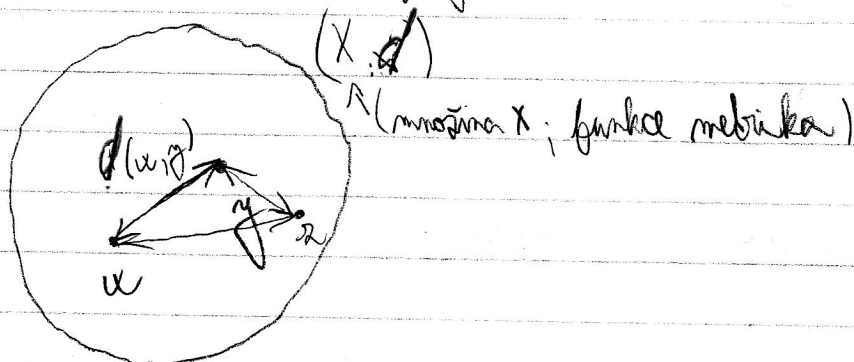 (X, d)
(množina X; funkce metrika)
d(x,y)
y
z
x